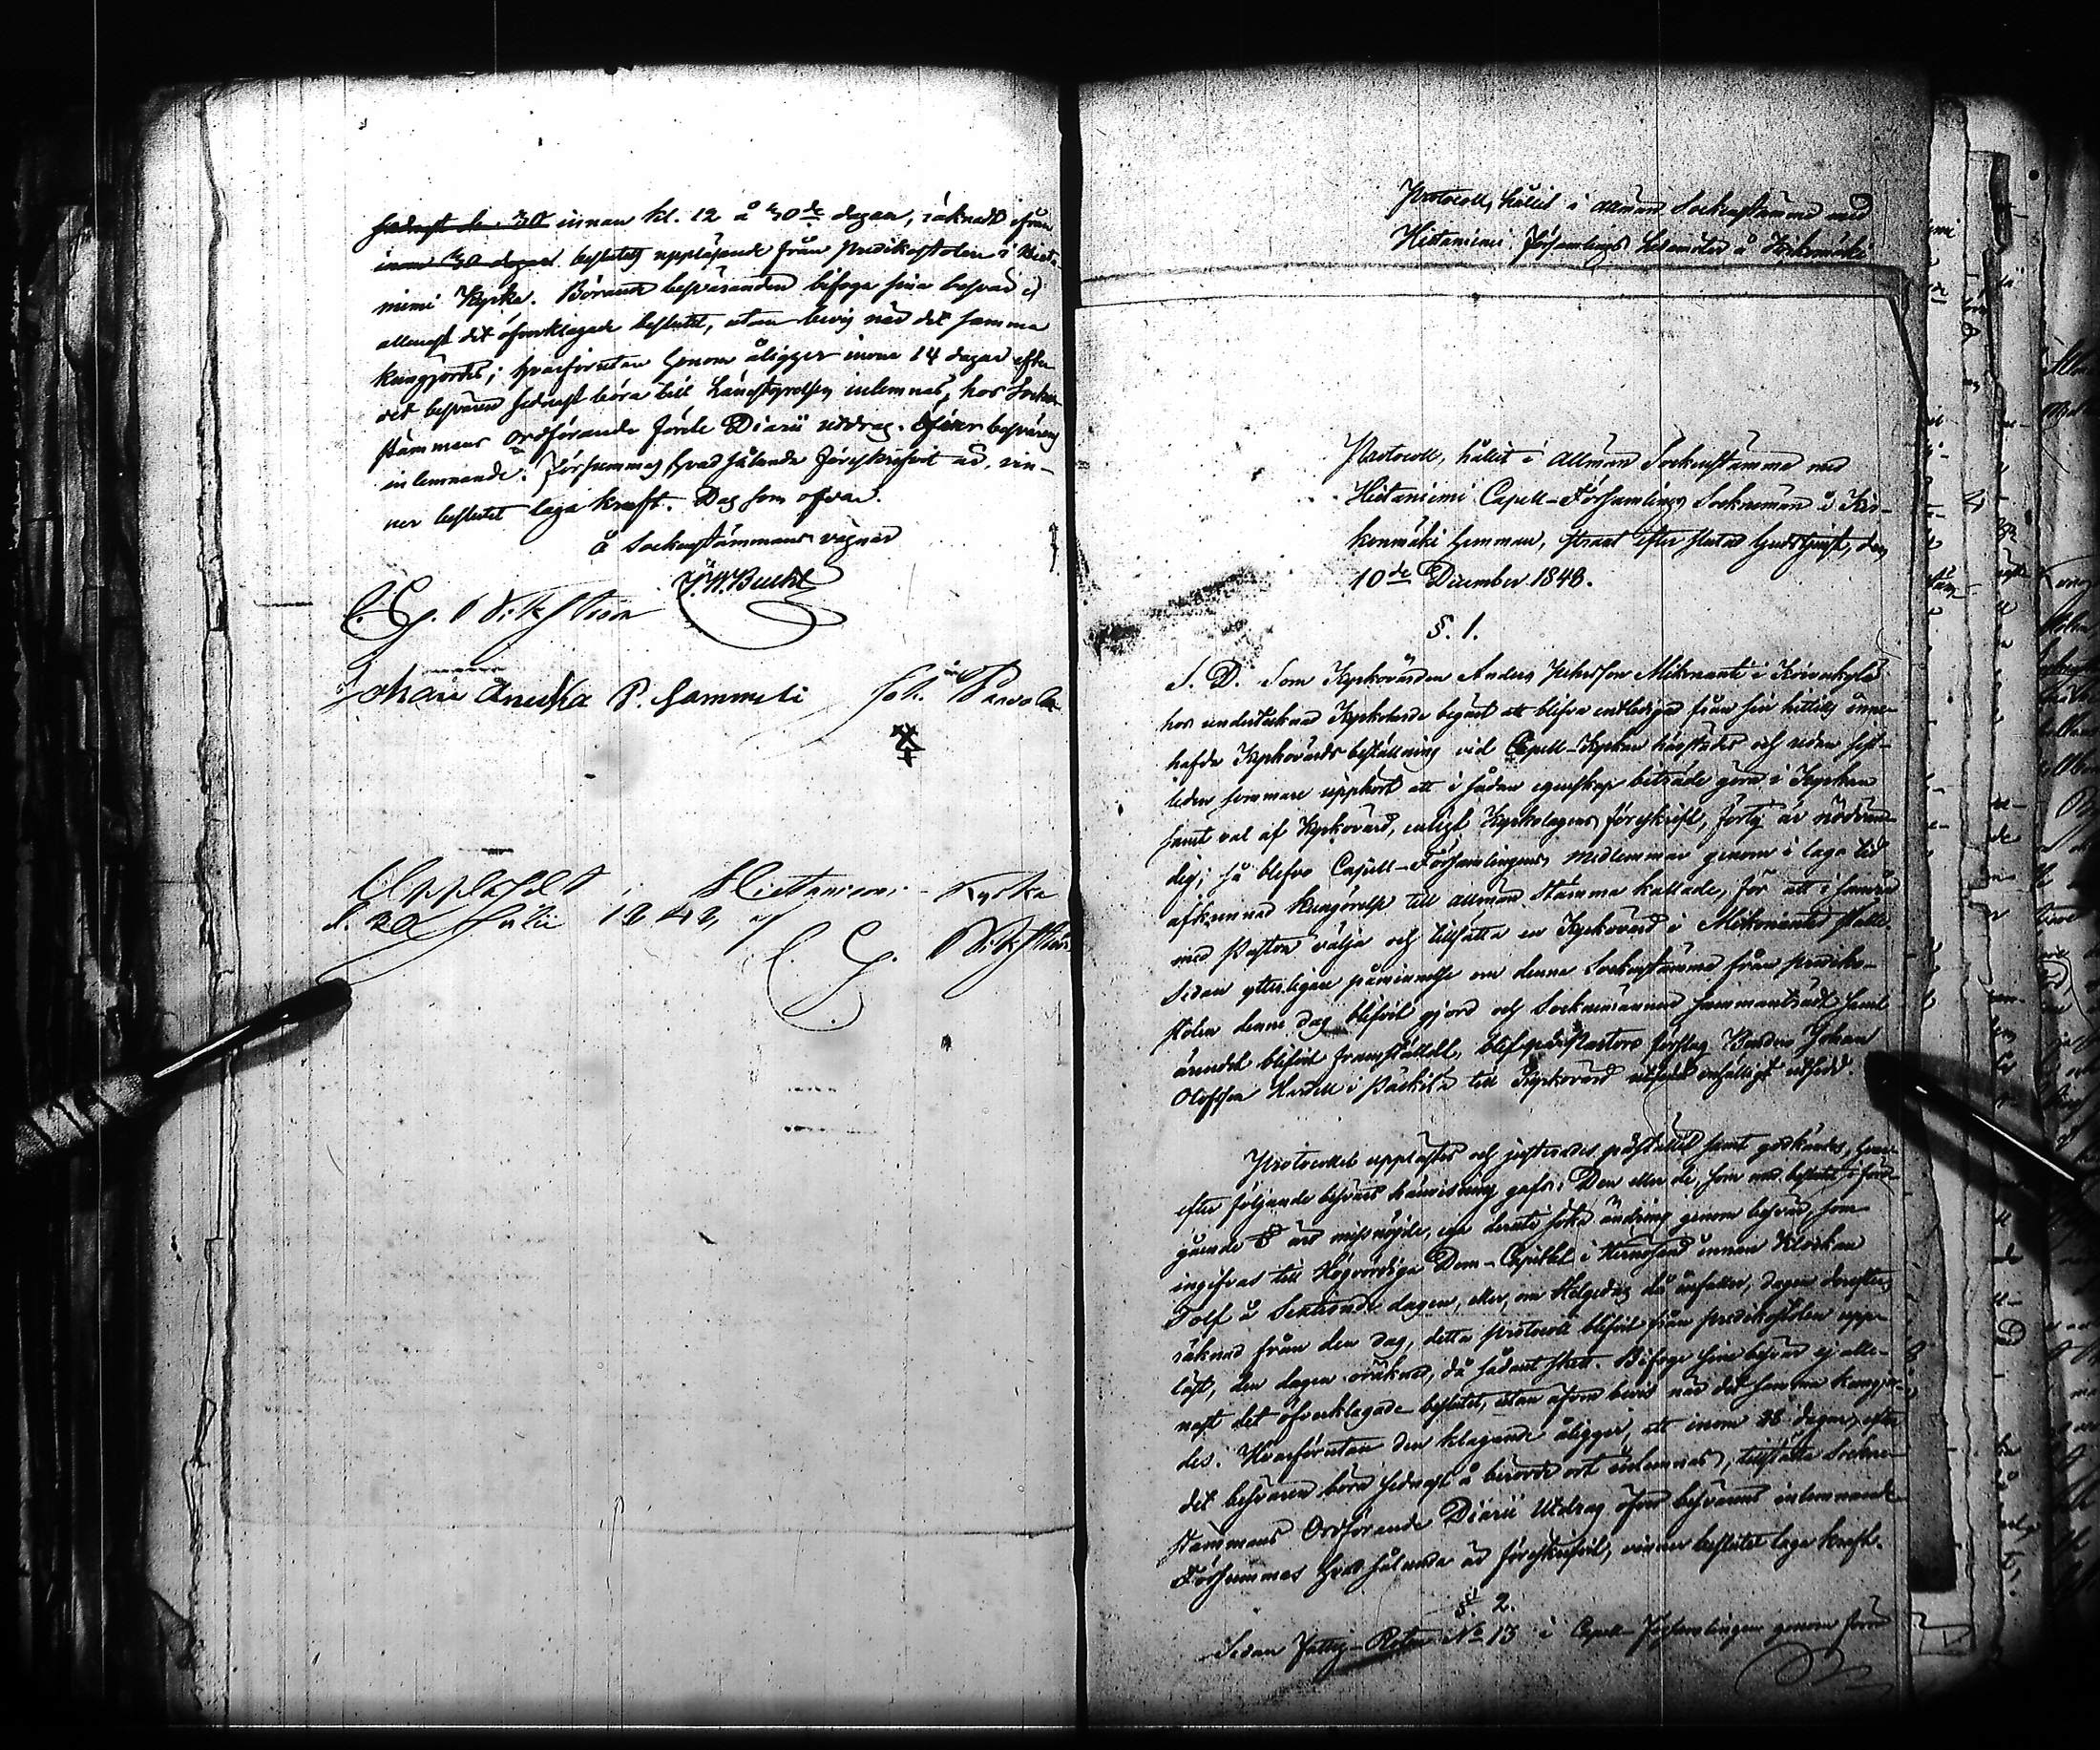 senast den 30 innan kl. 12 å 30de dagen, räknadt ifrån
inom 30 dagar beslutets uppläsande från Predikostolen i Hieta-
niemi Kyrka. Börande besväranden bifoga sina besvär ej
allenast det öfverklagade beslutet, utan bevis när det samma
kungjordes; hvarförutan honom åligger inom 14 dagar efter
det besvären sednast böra till Länsstyrelsen inlemnas, hos Socken-
stämmans Ordförande förete Diarii utdrag öfver besvärens
inlemnande. Försummas hvad sålunda föreskrifvit är, vin-
ner beslutet laga kraft. Dag som ofvan.
å Sockenstämmans vägnar
J. W. Bucht
C. G.
Johan P. Sammeli Joh.
Uppläst i Hietaniemi Kyrka
d. Julii 1848, af
C. G.
Protocoll, hållit i allmän Sockenstämma med
Hietaniemi Församlings ledamöter å Kirkomäki
Protocoll, hållit i Allmän Sockenstämma med
Hietaniemi Capell-Församlings Socknemän å Kir-
konmäki hemman, straxt efter slutad Gudstjenst, den
10de December 1848.
§. 1.
S. D. Som Kyrkovärden Anders Mikonanti i Koivukylä
hos undertecknad Kyrkoherde begärt att blifva entledigad från sin hittills inne-
hafda Kyrkovärds beställning vid Capell-Kyrkan härstädes och redan sist-
leden sommare upphört att i sådan egenskap biträde göra i Kyrkan
samt val af Kyrkovärd, enligt Kyrkolagens föreskrift, förty är nödvän-
dig; så blefvo Capell-Församlingens medlemmar genom i laga tid
afkunnad kungörelse till allmän stämma kallade, för att i samråd
med Pastor välja och tillsätta en Kyrkovärd i Mikonantis ställe.
Sedan ytterligare påminnelse om denna Sockenstämma från prediko-
stolen denne dag blifvit gjord och Sockenmännen sammanträdt samt
ärendet blifvit framställdt, blef på Pastors förslag Bonden Johan
Olofsson i Päckilä till Kyrkovärd enhälligt utsedd.
Protocollet upplästes och justerades på stället samt godkändes, hvar-
efter följande besvärs hänvisning gafs: Den eller de, som med beslutet i före-
gående § äro missnöjde, ega deruti söka ändring genom besvär, som
ingifvas till Högvördiga Dom-Capitlet i Hernösand innan Klockan
Tolf å Trettionde dagen, eller, om Helgedag då infaller, dagen derefter,
räknad från den dag, detta protocoll blifvit från predikostolen upp-
läst, den dagen oräknad, då sådant skett. Bifoge sine besvär ej alle-
nast det öfverklagade beslutet, utan äfven bevis när det samma kungjor-
des. Hvarförutan den klagande åligger, att inom dagar, efter
det besvären böra sednast å berörde ort inlemnas, tillställa Socken-
stämmans Ordförande Diarii Utdrag öfver besvärens inlemnande.
Försummas hvad sålunda är föreskrifvit, vinner beslutet laga kraft.
§. 2.
Sedan Fattig-Roten No 13 i Capell-Församlingen genom förra